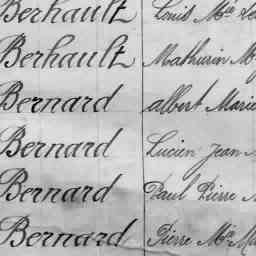 Berhault Louis Mie
Berhault Mathurin M
Bernard albert Marie
Bernard Lucien Jean
Bernard Paul Pierre
Bernard Pierre Mie Ma